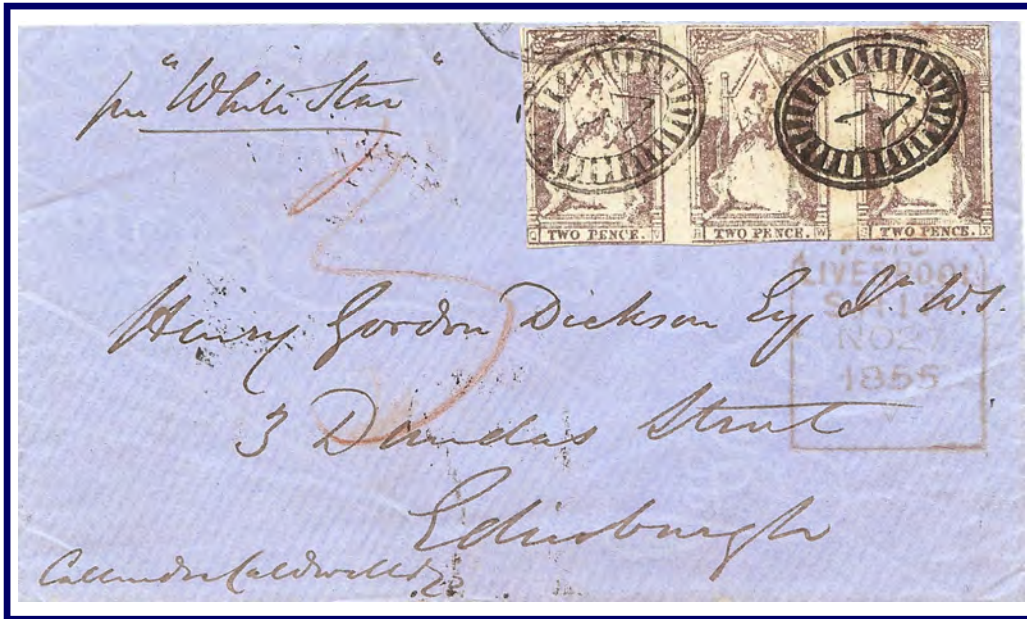 per "White Star"
TWO PENCE. TWO PENCE. TWO PENCE.
PAID
LIVERPOOL
SHIP
NO 27
1855
Henry Gordon Dickson Esq Jr. W.S.
3 Dundas Street
Edinburgh